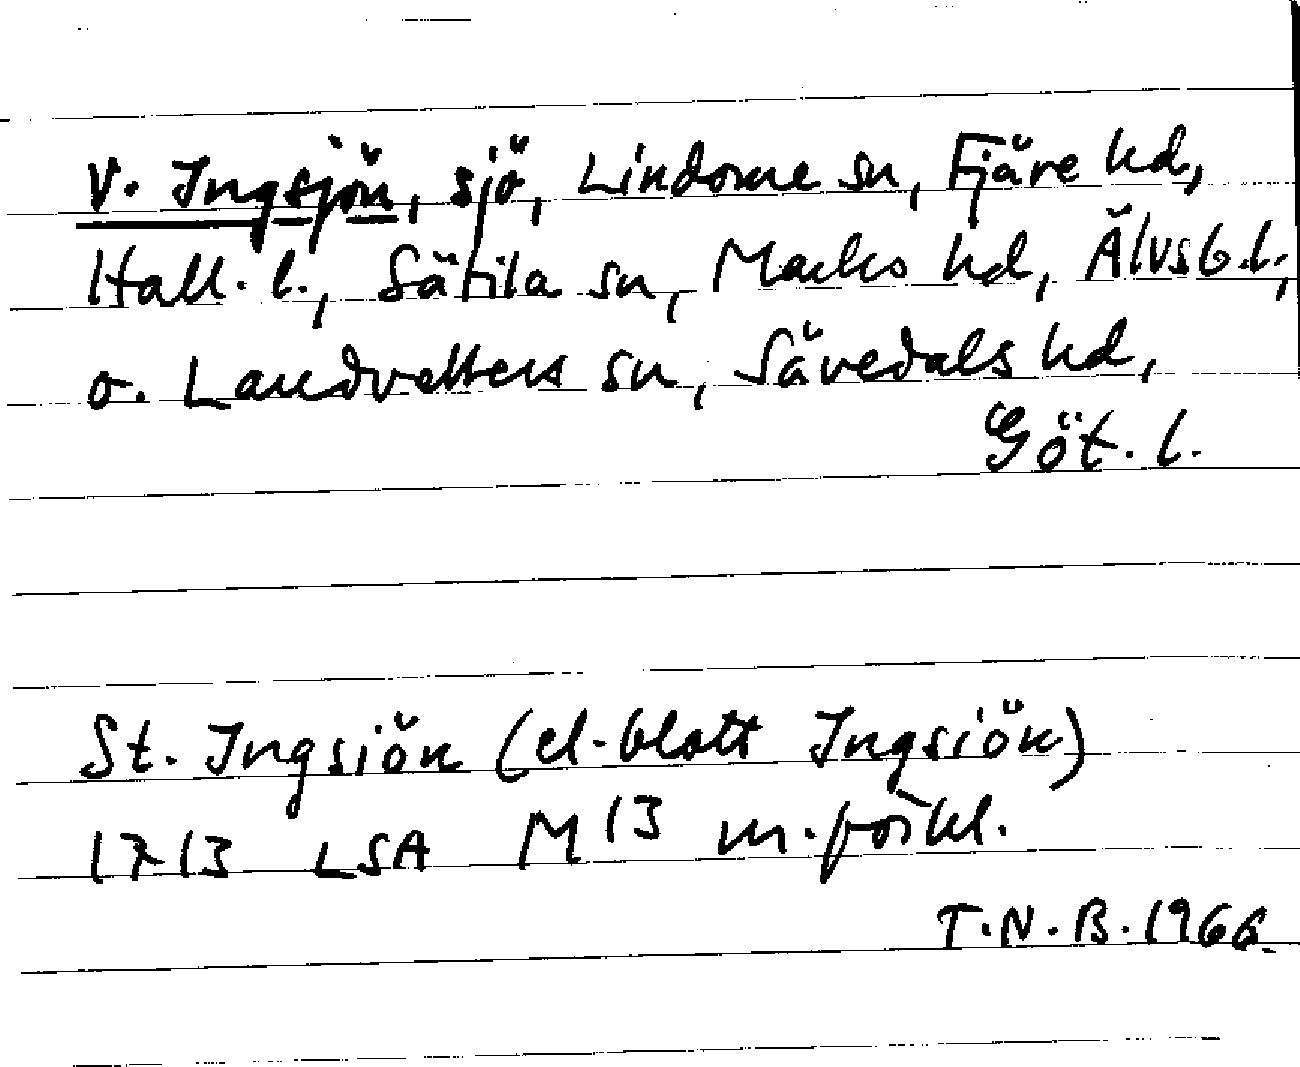 V. Ingsjön, sjö, Lindome sn, Fjäre hd,
Hall. l., Sätila sn, Marks hd, Älvsb. l.,
o. Landvetters sn, Sävedals hd,
Göt. l.
St. Ingsiön (el. blott Ingsiön)
1713 LSA M 13 m. förkl.
T.N.B. 1966